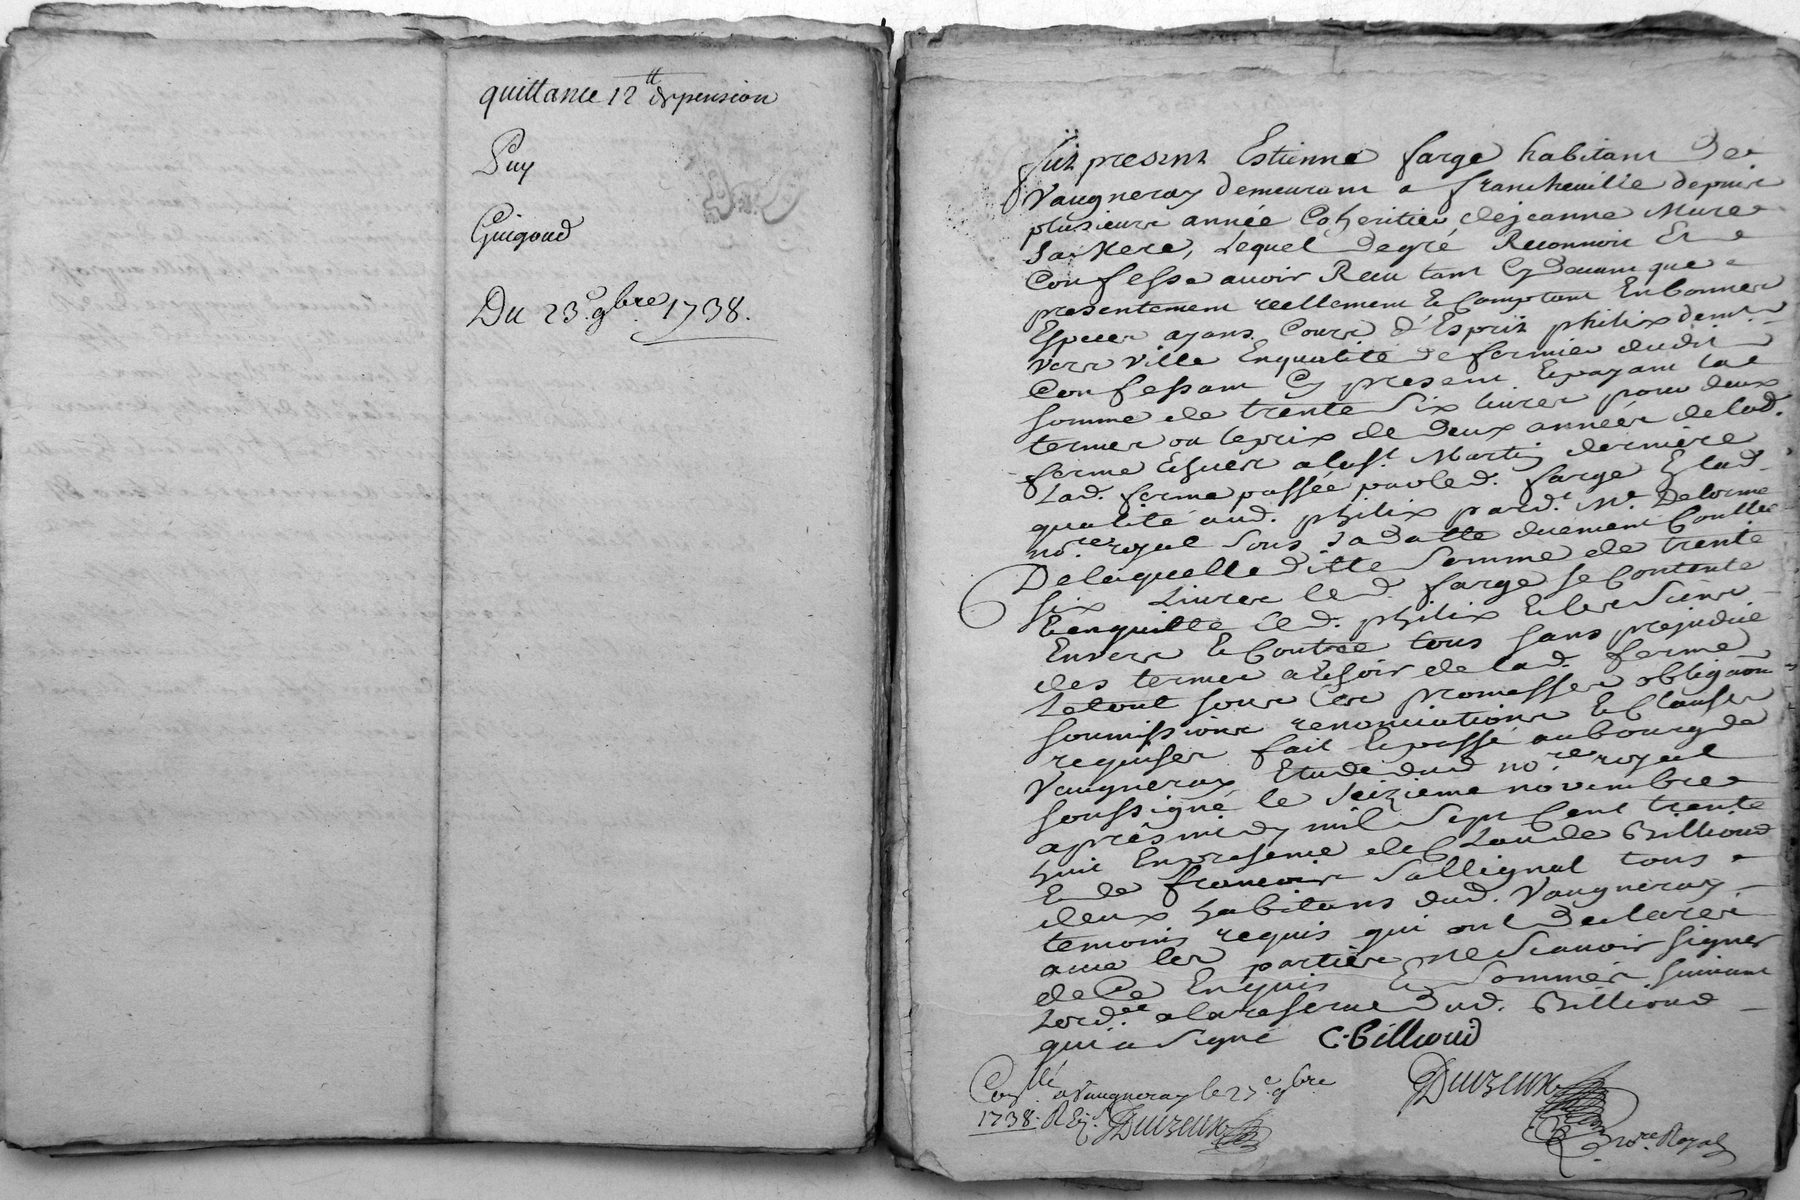 quittance 12 tt de pension
Puy
Guigoud
Du 23e 9bre 1738.
fut present Estienne farge habitant de
Vaugneray demeurant a francheuille depuis
plusieurs année Coheritier de jeanne Mure
sa Mere, Lequel de gré Reconnoit Et
Confesse auoir Receu tant Cy deuant que
presentement reellement & Comptant En bonnes
Especes ayans Cours d'Esprit philix dem.t
vers ville En qualité de fermier dudit
Confessant Cy present. & payant la
somme de trente Six liures pour deux
termes ou le prix de deux années de lad.
ferme Echues a la st. Martin derniere
Lad. ferme passée par led. farge En lad.
qualité aud. philix pard.t Me. Delorme
no.re royal sous sa datte duement Conllée
De laquelle ditte Somme de trente
six Liures led. farge se Contente
& en quitte led. philix & les Siens
Enuers & Contre tous sans prejudice
des termes a Echoir de lad. ferme
Le tout sous les promesses obligaõn
soumissions renonciations & Clauses
requises fait & passé au bourg de
Vaugneray Etude dud no.re royal
soussigné le seizieme novembre
après midy mil Sept Cent trente
huit En presence de Claude Billioud
& de francois Sallignat tous
deux habitans dud. Vaugneray
temoins requis qui ont declarer
auec les parties ne Scauoir signer
de Ce Enquis & Sommés suiuant
Lord.ce a la reserue dud. Billioud
qui a Signé C. Billioud
Con.llé a Vaugneray le 27e 9bre
1738. R